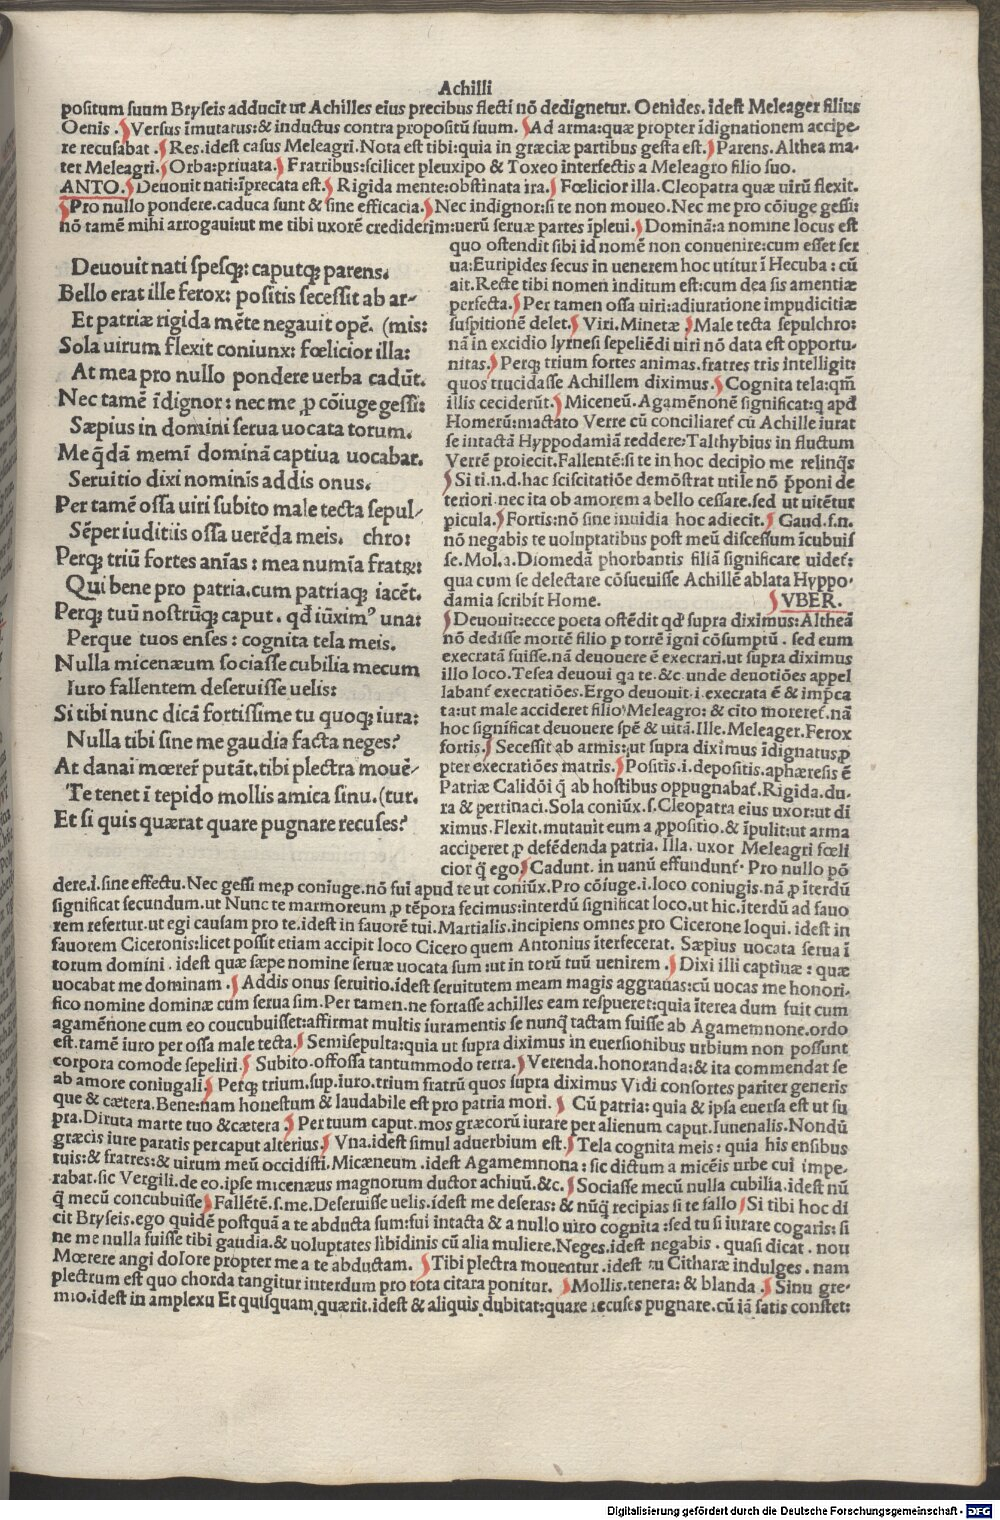 Achilli
positum suum Bryseis adducit ut Achilles eius precibus flecti nō dedignetur. Oenides. idest Meleager filius
Oenis. Versus īmutatus: & inductus contra propositū suum. Ad arma: quæ propter īdignationem accipe-
re recusabat. Res. idest casus Meleagri. Nota est tibi: quia in græciæ partibus gesta est. Parens. Althea ma-
ter Meleagri. Orba: priuata. Fratribus: scilicet pleuxipo & Toxeo interfectis a Meleagro filio suo.
ANTO. Deuouit nati: īprecata est. Rigida mente: obstinata ira. Fœlicior illa. Cleopatra quæ uirū flexit.
Pro nullo pondere. caduca sunt & sine efficacia. Nec indignor: si te non moueo. Nec me pro cōiuge gessi:
nō tamē mihi arrogaui: ut me tibi uxorē crediderim: uerū seruæ partes īpleui. Dominā: a nomine locus est
Deuouit nati spesq;: caputq; parens.
Bello erat ille ferox: positis secessit ab ar-
Et patriæ rigida mēte negauit opē. (mis:
Sola uirum flexit coniunx: fœlicior illa:
At mea pro nullo pondere uerba cadūt.
Nec tamē īdignor: nec me ꝓ cōiuge gessi:
Sæpius in domini serua uocata torum.
Me q̄dā memī dominā captiua uocabat.
Seruitio dixi nominis addis onus.
Per tamē ossa uiri subito male tecta sepul-
Sēper iuditiis ossa uerēda meis. chro:
Perq; triū fortes anīas: mea numīa fratꝝ:
Qui bene pro patria. cum patriaq; iacēt.
Perq; tuū nostrūq; caput. qđ iūximꝰ una:
Perque tuos enses: cognita tela meis.
Nulla micenæum sociasse cubilia mecum
Iuro fallentem deseruisse uelis:
Si tibi nunc dicā fortissime tu quoq; iura:
Nulla tibi sine me gaudia facta neges?
At danai mœrer̄ putāt. tibi plectra mouē-
Te tenet ī tepido mollis amica sinu. (tur.
Et si quis quærat quare pugnare recuses?
quo ostendit sibi id nomē non conuenire: cum esset ser
ua: Euripides secus in uenerem hoc utitur ī Hecuba: cū
ait. Recte tibi nomen inditum est: cum dea sis amentiæ
perfecta. Per tamen ossa uiri: adiuratione impudicitiæ
suspitionē delet. Viri. Minetæ Male tecta sepulchro:
nā in excidio lyrnesi sepeliēdi uiri nō data est opportu-
nitas. Perq; trium fortes animas. fratres tris intelligit:
quos trucidasse Achillem diximus. Cognita tela: qm̄
illis ceciderūt. Miceneū. Agamēnonē significat: q apđ
Homerū: mactato Verre cū conciliaret̄ cū Achille iurat
se intactā Hyppodamiā reddere: Talthybius in fluctum
Verrē proiecit. Fallentē: si te in hoc decipio me relinq̄s
Si ti. n. d. hac sciscitatiōe demōstrat utile nō ꝓponi de
teriori. nec ita ob amorem a bello cessare. sed ut uitētur
picula. Fortis: nō sine inuidia hoc adiecit. Gaud. s. n.
nō negabis te uoluptatibus post meū discessum īcubuis
se. Mol. a. Diomedā phorbantis filiā significare uidet̄:
qua cum se delectare cōsueuisse Achillē ablata Hyppo-
damia scribit Home. VBER.
Deuouit: ecce poeta ostēdit qđ supra diximus: Altheā
nō dedisse mortē filio ꝓ torrē igni cōsumptū. sed eum
execratā fuisse. nā deuouere ē execrari. ut supra diximus
illo loco. Tesea deuoui qa te. &c. unde deuotiōes appel
labant̄ execratiōes. Ergo deuouit. i. execrata ē & imp̄ca
ta: ut male accideret filio Meleagro: & cito moreret̄. nā
hoc significat deuouere spē & uitā. Ille. Meleager. Ferox
fortis. Secessit ab armis: ut supra diximus īdignatus ꝓ
pter execratiōes matris. Positis. i. depositis. aphæresis ē
Patriæ Calidōi q̄ ab hostibus oppugnabat̄. Rigida. du-
ra & pertinaci. Sola coniūx. s. Cleopatra eius uxor: ut di
ximus. Flexit. mutauit eum a ꝓpositio. & īpulit: ut arma
acciperet ꝓ defēdenda patria. Illa. uxor Meleagri fœli
cior q̄ ego. Cadunt. in uanū effundunt̄. Pro nullo pō
dere. i. sine effectu. Nec gessi me ꝓ coniuge. nō fui apud te ut coniūx. Pro cōiuge. i. loco coniugis. nā ꝓ īterdū
significat secundum. ut Nunc te marmoreum ꝓ tēpora fecimus: interdū significat loco. ut hic. īterdū ad fauo
rem refertur. ut egi causam pro te. idest in fauorē tui. Martialis. incipiens omnes pro Cicerone loqui. idest in
fauorem Ciceronis: licet possit etiam accipit loco Cicero quem Antonius īterfecerat. Sæpius uocata serua ī
torum domini. idest quæ sæpe nomine seruæ uocata sum: ut in torū tuū uenirem. Dixi illi captiuæ: quæ
uocabat me dominam. Addis onus seruitio. idest seruitutem meam magis aggrauas: cū uocas me honori-
fico nomine dominæ cum serua sim. Per tamen. ne fortasse achilles eam respueret: quia īterea dum fuit cum
agamēnone cum eo coucubuisset: affirmat multis iuramentis se nunq̄ tactam fuisse ab Agamemnone. ordo
est. tamē iuro per ossa male tecta. Semisepulta: quia ut supra diximus in euersionibus urbium non possunt
corpora comode sepeliri. Subito. offossa tantummodo terra. Verenda. honoranda: & ita commendat se
ab amore coniugali. Perq; trium. sup. iuro. trium fratrū quos supra diximus Vidi consortes pariter generis
que & cætera. Bene: nam honestum & laudabile est pro patria mori. Cū patria: quia & ipsa euersa est ut su
pra. Diruta marte tuo & cætera. Per tuum caput. mos græcorū iurare per alienum caput. Iuuenalis. Nondū
græcis iure paratis per caput alterius. Vna. idest simul aduerbium est. Tela cognita meis: quia his ensibus
tuis: & fratres: & uirum meū occidisti. Micæneum. idest Agamemnona: sic dictum a micēis urbe cui impe-
rabat. sic Vergili. de eo. ipse micenæus magnorum ductor achiuū. &c. Sociasse mecū nulla cubilia. idest nū
q̄ mecū concubuisse Fallētē. s. me. Deseruisse uelis. idest me deseras: & nūq̄ recipias si te fallo Si tibi hoc di
cit Bryseis. ego quidē postquā a te abducta sum: fui intacta & a nullo uiro cognita: sed tu si iurare cogaris: si
ne me nulla fuisse tibi gaudia. & uoluptates libidinis cū alia muliere. Neges. idest negabis. quasi dicat. non
Mœrere angi dolore propter me a te abductam. Tibi plectra mouentur. idest tu Citharæ indulges. nam
plectrum est quo chorda tangitur interdum pro tota citara ponitur. Mollis. tenera: & blanda. Sinu gre-
mio. idest in amplexu Et quisquam quærit. idest & aliquis dubitat: quare recuses pugnare. cū iā satis constet:
Digitalisierung gefördert durch die Deutsche Forschungsgemeinschaft - DFG